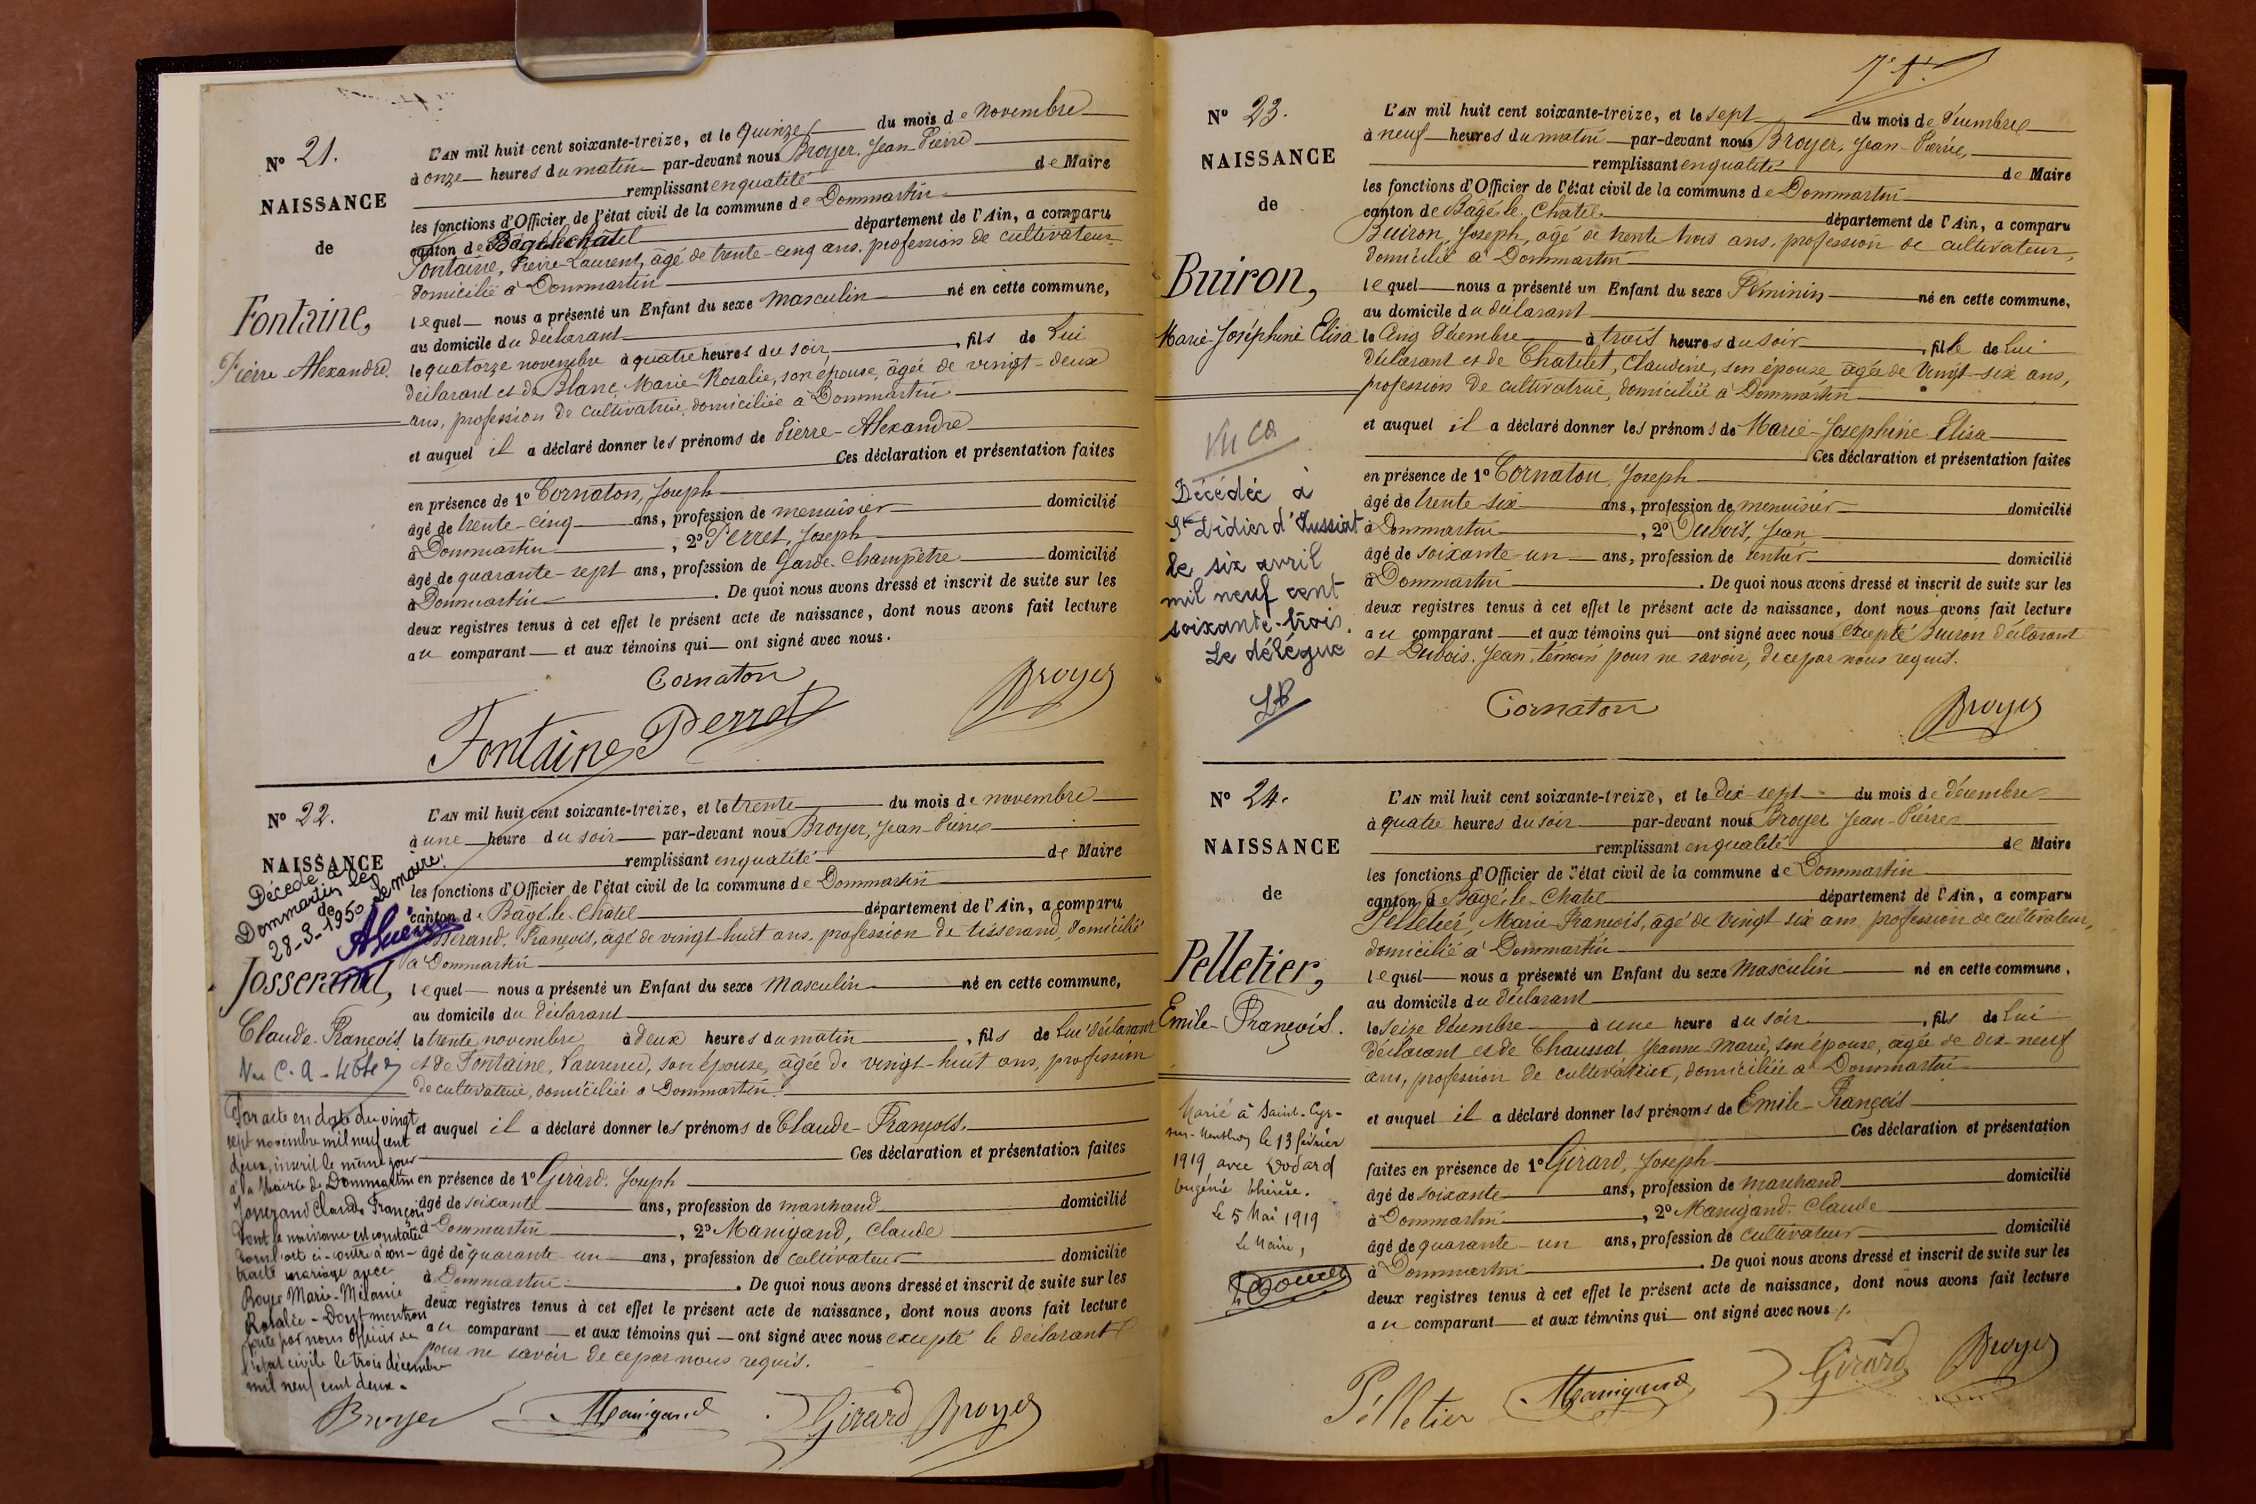 N° 21.
NAISSANCE
de
Fontaine,
Pierre-Alexandre.
L'AN mil huit cent soixante-treize, et le quinze du mois de novembre
à onze heures du matin par-devant nous Broyer, Jean-Pierre
remplissant en qualité de Maire
les fonctions d'Officier de l'état civil de la commune de Dommartin
canton de Bâgé-le-châtel département de l'Ain, a comparu
Fontaine, Pierre-Laurent, âgé de trente-cinq ans, profession de cultivateur,
domicilié à Dommartin
lequel nous a présenté un Enfant du sexe masculin né en cette commune,
au domicile du déclarant
le quatorze novembre à quatre heures du soir, fils de Lui
déclarant et de Blanc, Marie-Rosalie, son épouse, âgée de vingt-deux
ans, profession de cultivatrice, domiciliée à Dommartin
et auquel il a déclaré donner les prénoms de Pierre-Alexandre
Ces déclaration et présentation faites
en présence de 1° Cornaton, Joseph
âgé de trente-cinq ans, profession de menuisier domicilié
à Dommartin, 2° Perret, Joseph
âgé de quarante-sept ans, profession de Garde-Champêtre domicilié
à Dommartin. De quoi nous avons dressé et inscrit de suite sur les
deux registres tenus à cet effet le présent acte de naissance, dont nous avons fait lecture
au comparant et aux témoins qui ont signé avec nous.
Cornaton
Broyer
Fontaine Perret
N° 22.
NAISSANCE
Décédé à
Dommartin le
de
28-3-1950 Le maire:
Josserand,
Claude-François
Par acte en date du vingt
sept novembre mil neuf cent
deux, inscrit le même jour
à la Mairie de Dommartin
Josserand Claude François
dont la naissance est constatée
dans l'acte ci-contre a con-
tracté mariage avec
Boyer Marie-Mélanie
Rosalie - Dont mention
faite par nous officier de
l'état civile le trois décembre
mil neuf cent deux.
L'AN mil huit cent soixante-treize, et le trente du mois de novembre
à une heure du soir par-devant nous Broyer, Jean-Pierre
remplissant en qualité de Maire
les fonctions d'Officier de l'état civil de la commune de Dommartin
canton de Bâgé-le-Châtel département de l'Ain, a comparu
Josserand, François, âgé de vingt-huit ans, profession de tisserand, domicilié
à Dommartin
lequel nous a présenté un Enfant du sexe Masculin né en cette commune,
au domicile du déclarant
le trente novembre à deux heures du matin, fils de Lui déclarant
et de Fontaine, Laurence, son épouse, âgée de vingt-huit ans, profession
de cultivatrice, domiciliée à Dommartin.
et auquel il a déclaré donner les prénoms de Claude-François.
Ces déclaration et présentation faites
en présence de 1° Girard, Joseph
âgé de soixante ans, profession de marchand domicilié
à Dommartin, 2° Manigand, Claude
âgé de quarante-un ans, profession de cultivateur domicilié
à Dommartin. De quoi nous avons dressé et inscrit de suite sur les
deux registres tenus à cet effet le présent acte de naissance, dont nous avons fait lecture
au comparant et aux témoins qui ont signé avec nous excepté le déclarant
pour ne savoir de ce par nous requis.
Broyer Manigand Girard Broyer
N° 23.
NAISSANCE
de
Buiron,
Marie-Joséphine Elisa
Vu CA
Décédée à
St Didier d'Aussiat
le six avril
mil neuf cent
soixante-trois.
Le délégué
L'AN mil huit cent soixante-treize, et le sept du mois de décembre
à neuf heures du matin par-devant nous Broyer, Jean-Pierre,
remplissant en qualité de Maire
les fonctions d'Officier de l'état civil de la commune de Dommartin
canton de Bâgé-le-Châtel département de l'Ain, a comparu
Buiron, Joseph, âgé de trente trois ans, profession de cultivateur,
domicilié à Dommartin
lequel nous a présenté un Enfant du sexe Féminin né en cette commune,
au domicile du déclarant
le Cinq décembre à trois heures du soir, fille de Lui
déclarant et de Chatelet, Claudine, son épouse âgée de Vingt-six ans,
profession de cultivatrice, domiciliée à Dommartin
et auquel il a déclaré donner les prénoms de Marie-Joséphine-Elisa
Ces déclaration et présentation faites
en présence de 1° Cornaton, Joseph
âgé de trente-six ans, profession de menuisier domicilié
à Dommartin, 2° Dubois, Jean
âgé de soixante-un ans, profession de rentier domicilié
à Dommartin. De quoi nous avons dressé et inscrit de suite sur les
deux registres tenus à cet effet le présent acte de naissance, dont nous avons fait lecture
au comparant et aux témoins qui ont signé avec nous excepté Buiron déclarant
et Dubois, Jean, témoin pour ne savoir, de ce par nous requis.
Cornaton Broyer
N° 24.
NAISSANCE
de
Pelletier,
Emile-François.
Marié à Saint-Cyr-
sur-Menthon le 13 février
1919 avec Dodard
Eugénie Thérèse.
Le 5 Mai 1919
Le Maire,
L'AN mil huit cent soixante-treize, et le dix-sept du mois de décembre
à quatre heures du soir par-devant nous Broyer Jean-Pierre
remplissant en qualité de Maire
les fonctions d'Officier de l'état civil de la commune de Dommartin
canton de Bâgé-le-Châtel département de l'Ain, a comparu
Pelletier, Marie-François, âgé de vingt six ans, profession de cultivateur,
domicilié à Dommartin
lequel nous a présenté un Enfant du sexe Masculin né en cette commune,
au domicile du déclarant
le seize décembre à une heure du soir, fils de Lui
déclarant et de Chaussat Jeanne-Marie, son épouse, âgée de dix-neuf
ans, profession de cultivatrice, domiciliée à Dommartin
et auquel il a déclaré donner les prénoms de Emile-François
Ces déclaration et présentation
faites en présence de 1° Girard, Joseph
âgé de soixante ans, profession de marchand domicilié
à Dommartin, 2° Manigand, Claude
âgé de quarante-un ans, profession de cultivateur domicilié
à Dommartin. De quoi nous avons dressé et inscrit de suite sur les
deux registres tenus à cet effet le présent acte de naissance, dont nous avons fait lecture
au comparant et aux témoins qui ont signé avec nous
Pelletier Manigand Girard Broyer